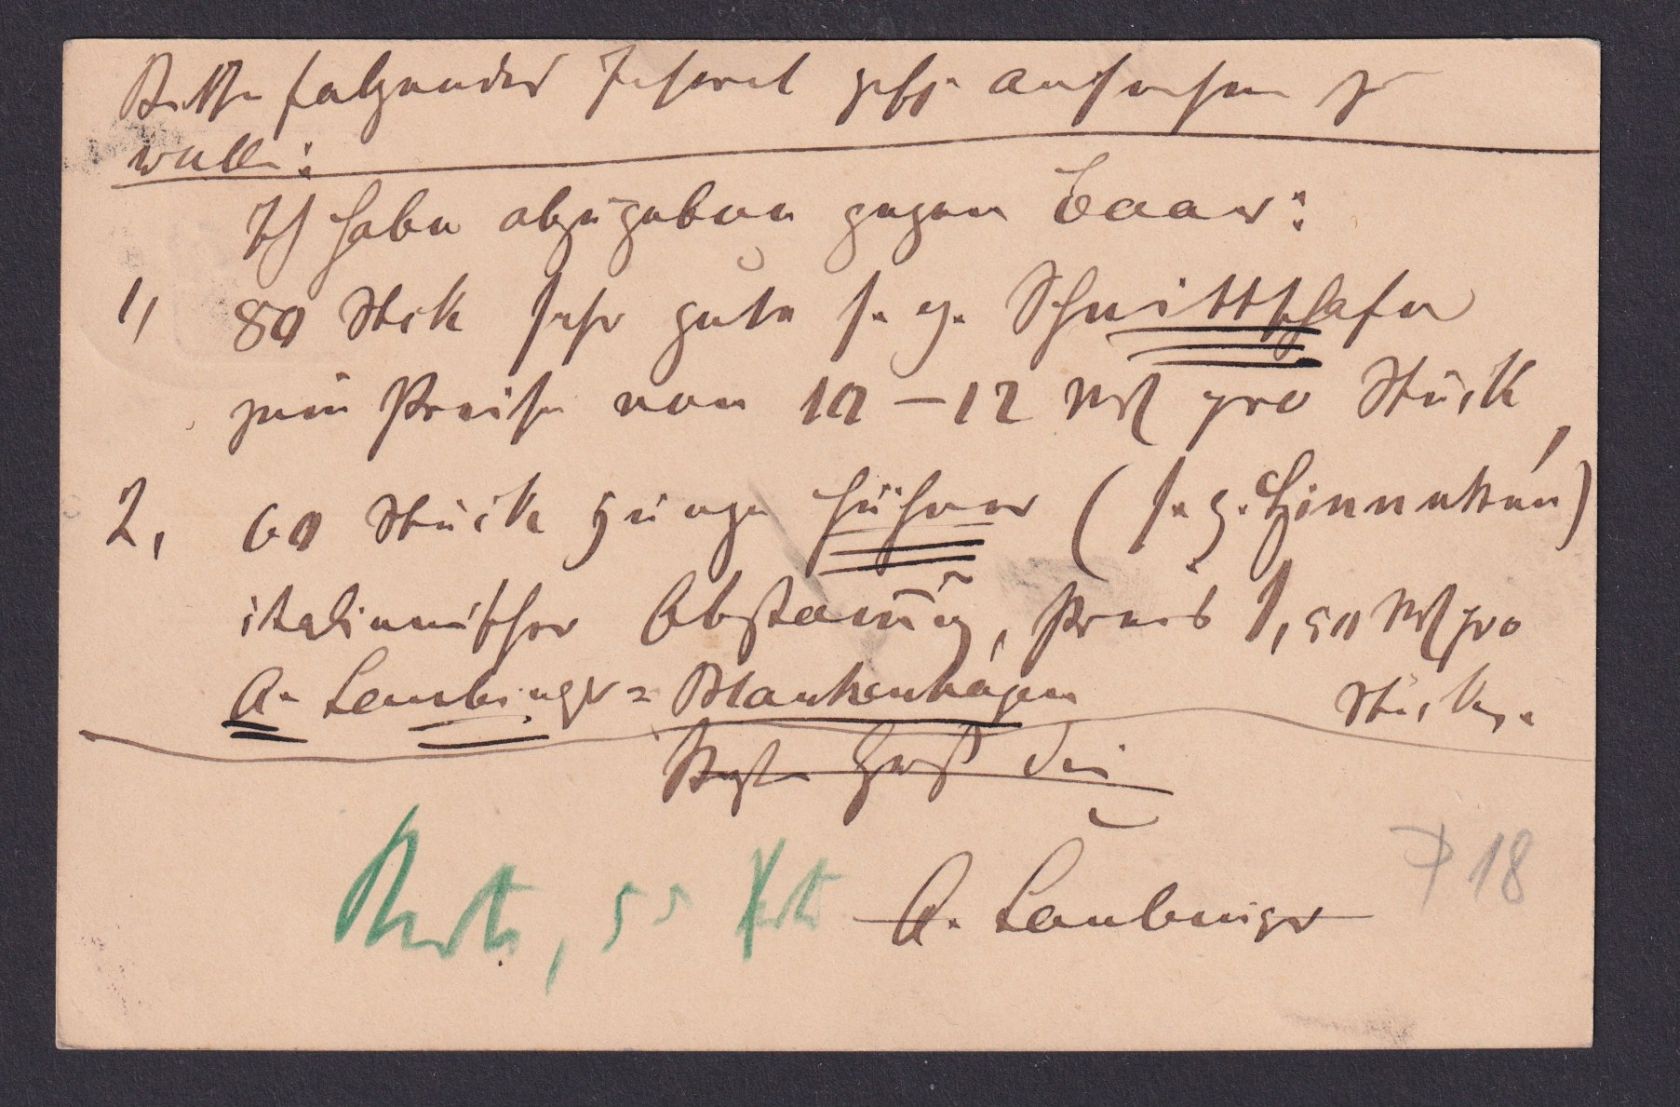 Bitte folgendes Inserat gefl. aufnehmen zu
wollen:
Ich habe abzugeben gegen baar:
1, 80 Stck sehr gute s. g. Schnittschafe
zum Preise von 10 – 12 Mk pro Stück,
2, 60 Stück junge Hühner (s. g.
italienischer Abstamg, Preis 1,50 Mk pro
Stück.
A. Laubinger = Blankenhagen
Gruß Dein
A. Laubinger
55
P 18